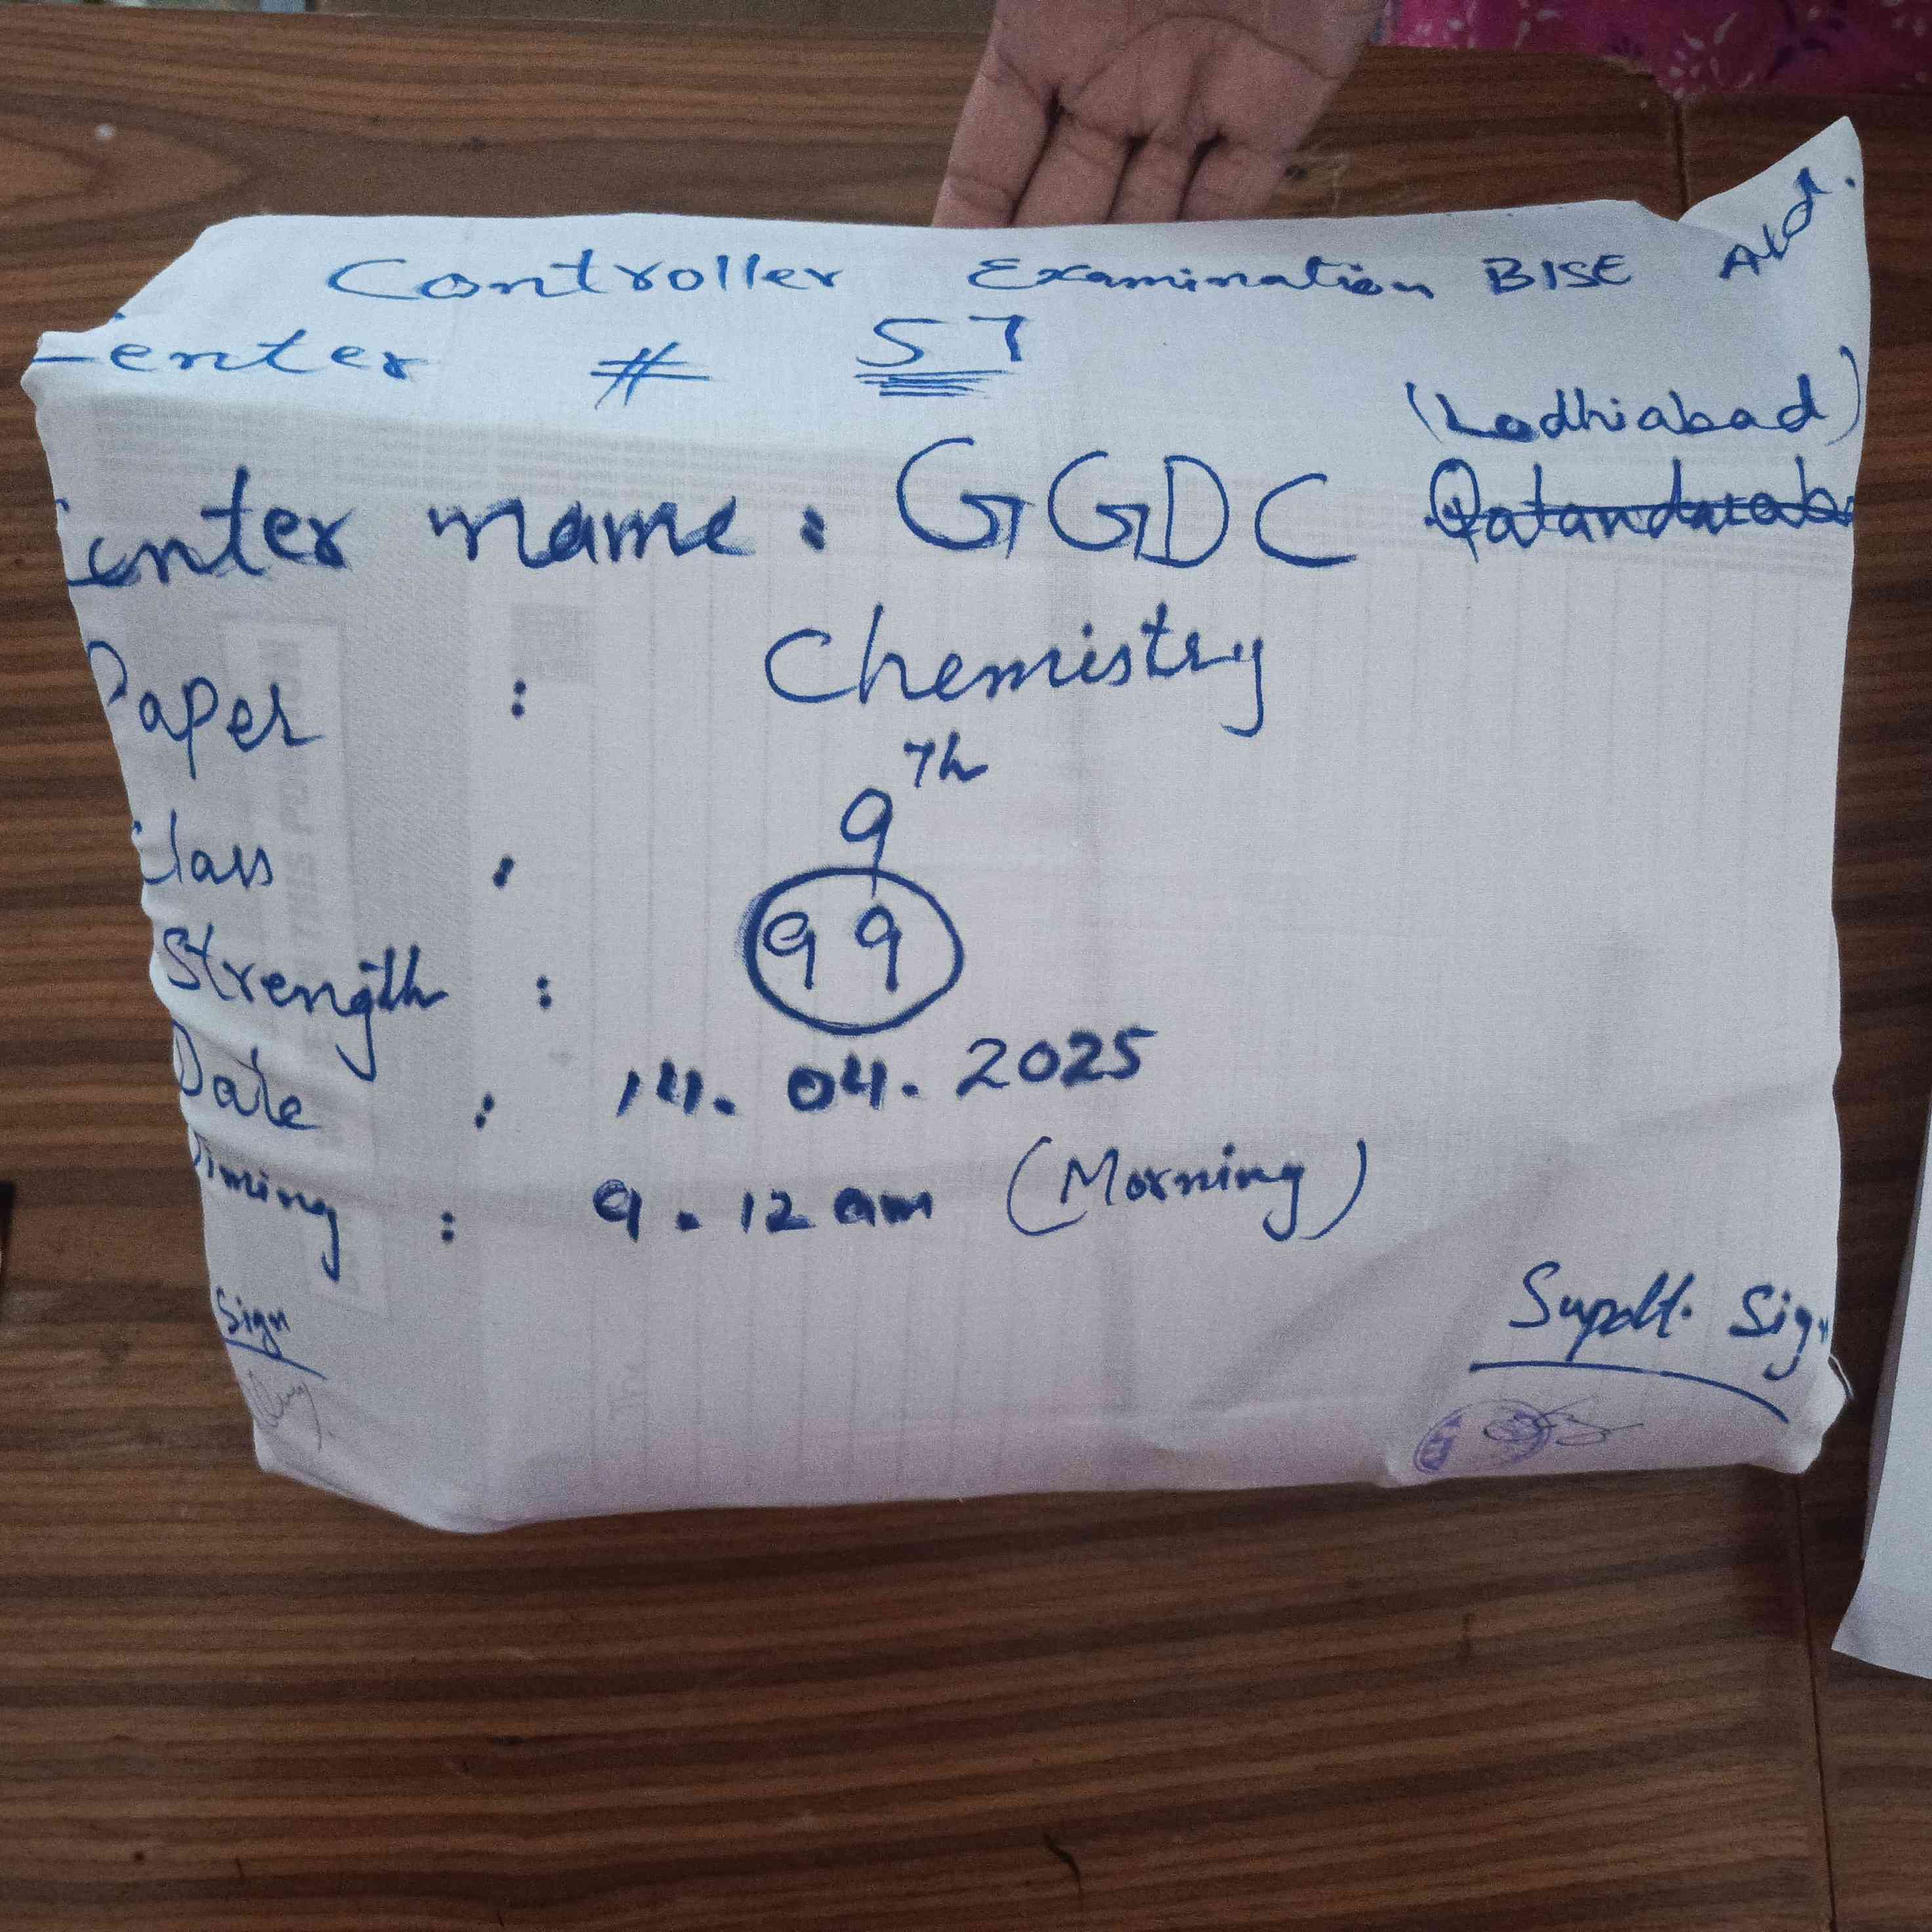 Controller Examination BISE Atd.
enter # 57
(Lodhiabad)
enter name : GGDC Qatandarab
Paper : Chemistry
Class : 9th
Strength : 99
Date : 14.04.2025
Timing : 9.12 am (Morning)
Sign Supdtt. Sign